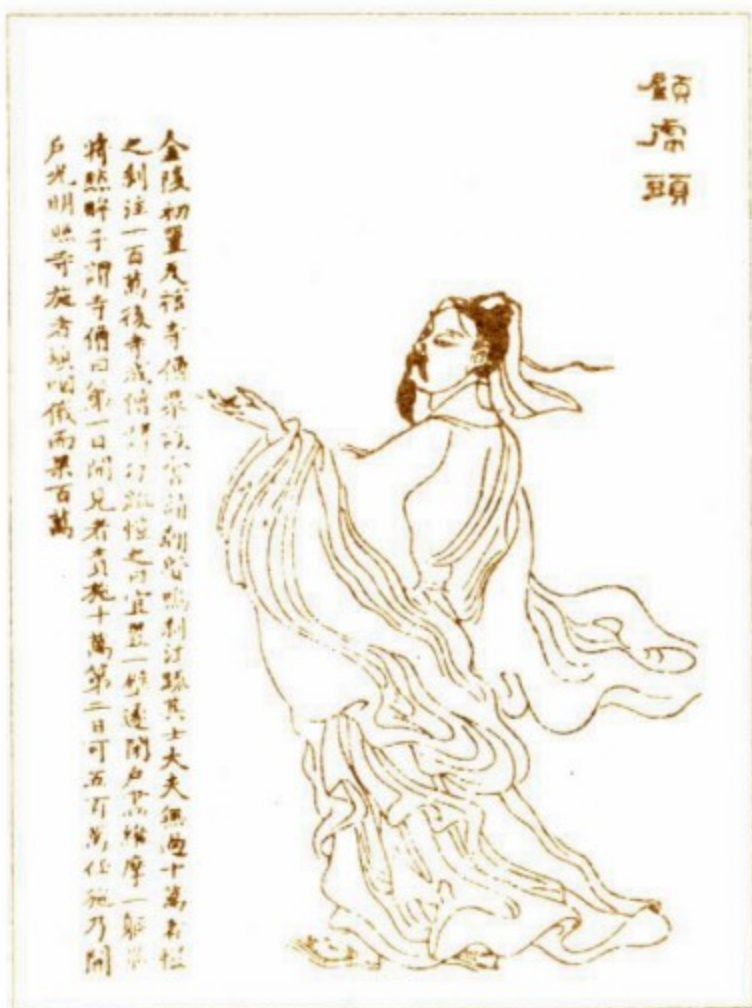 顧虎頭
金陵初置瓦棺寺僧眾設會請朝賢鳴刹注疏其士大夫無過十萬者愷
之刹注一百萬後寺成僧請勾疏愷之曰宜置一壁遂閉戶畫維摩一軀
將點眸子謂寺僧曰第一日開見者責施十萬第二日可五百萬任施乃開
戶光明照寺施者填咽俄而果百萬